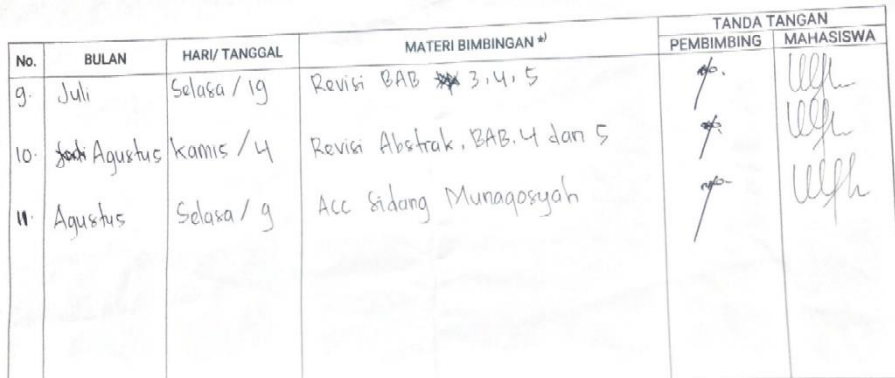 TANDA TANGAN
No. BULAN HARI/ TANGGAL MATERI BIMBINGAN *) PEMBIMBING MAHASISWA
9. Juli Selasa / 19 Revisi BAB 3, 4, 5
10. Agustus Kamis / 4 Revisi Abstrak, BAB. 4 dan 5
11. Agustus Selasa / 9 Acc Sidang Munaqosyah